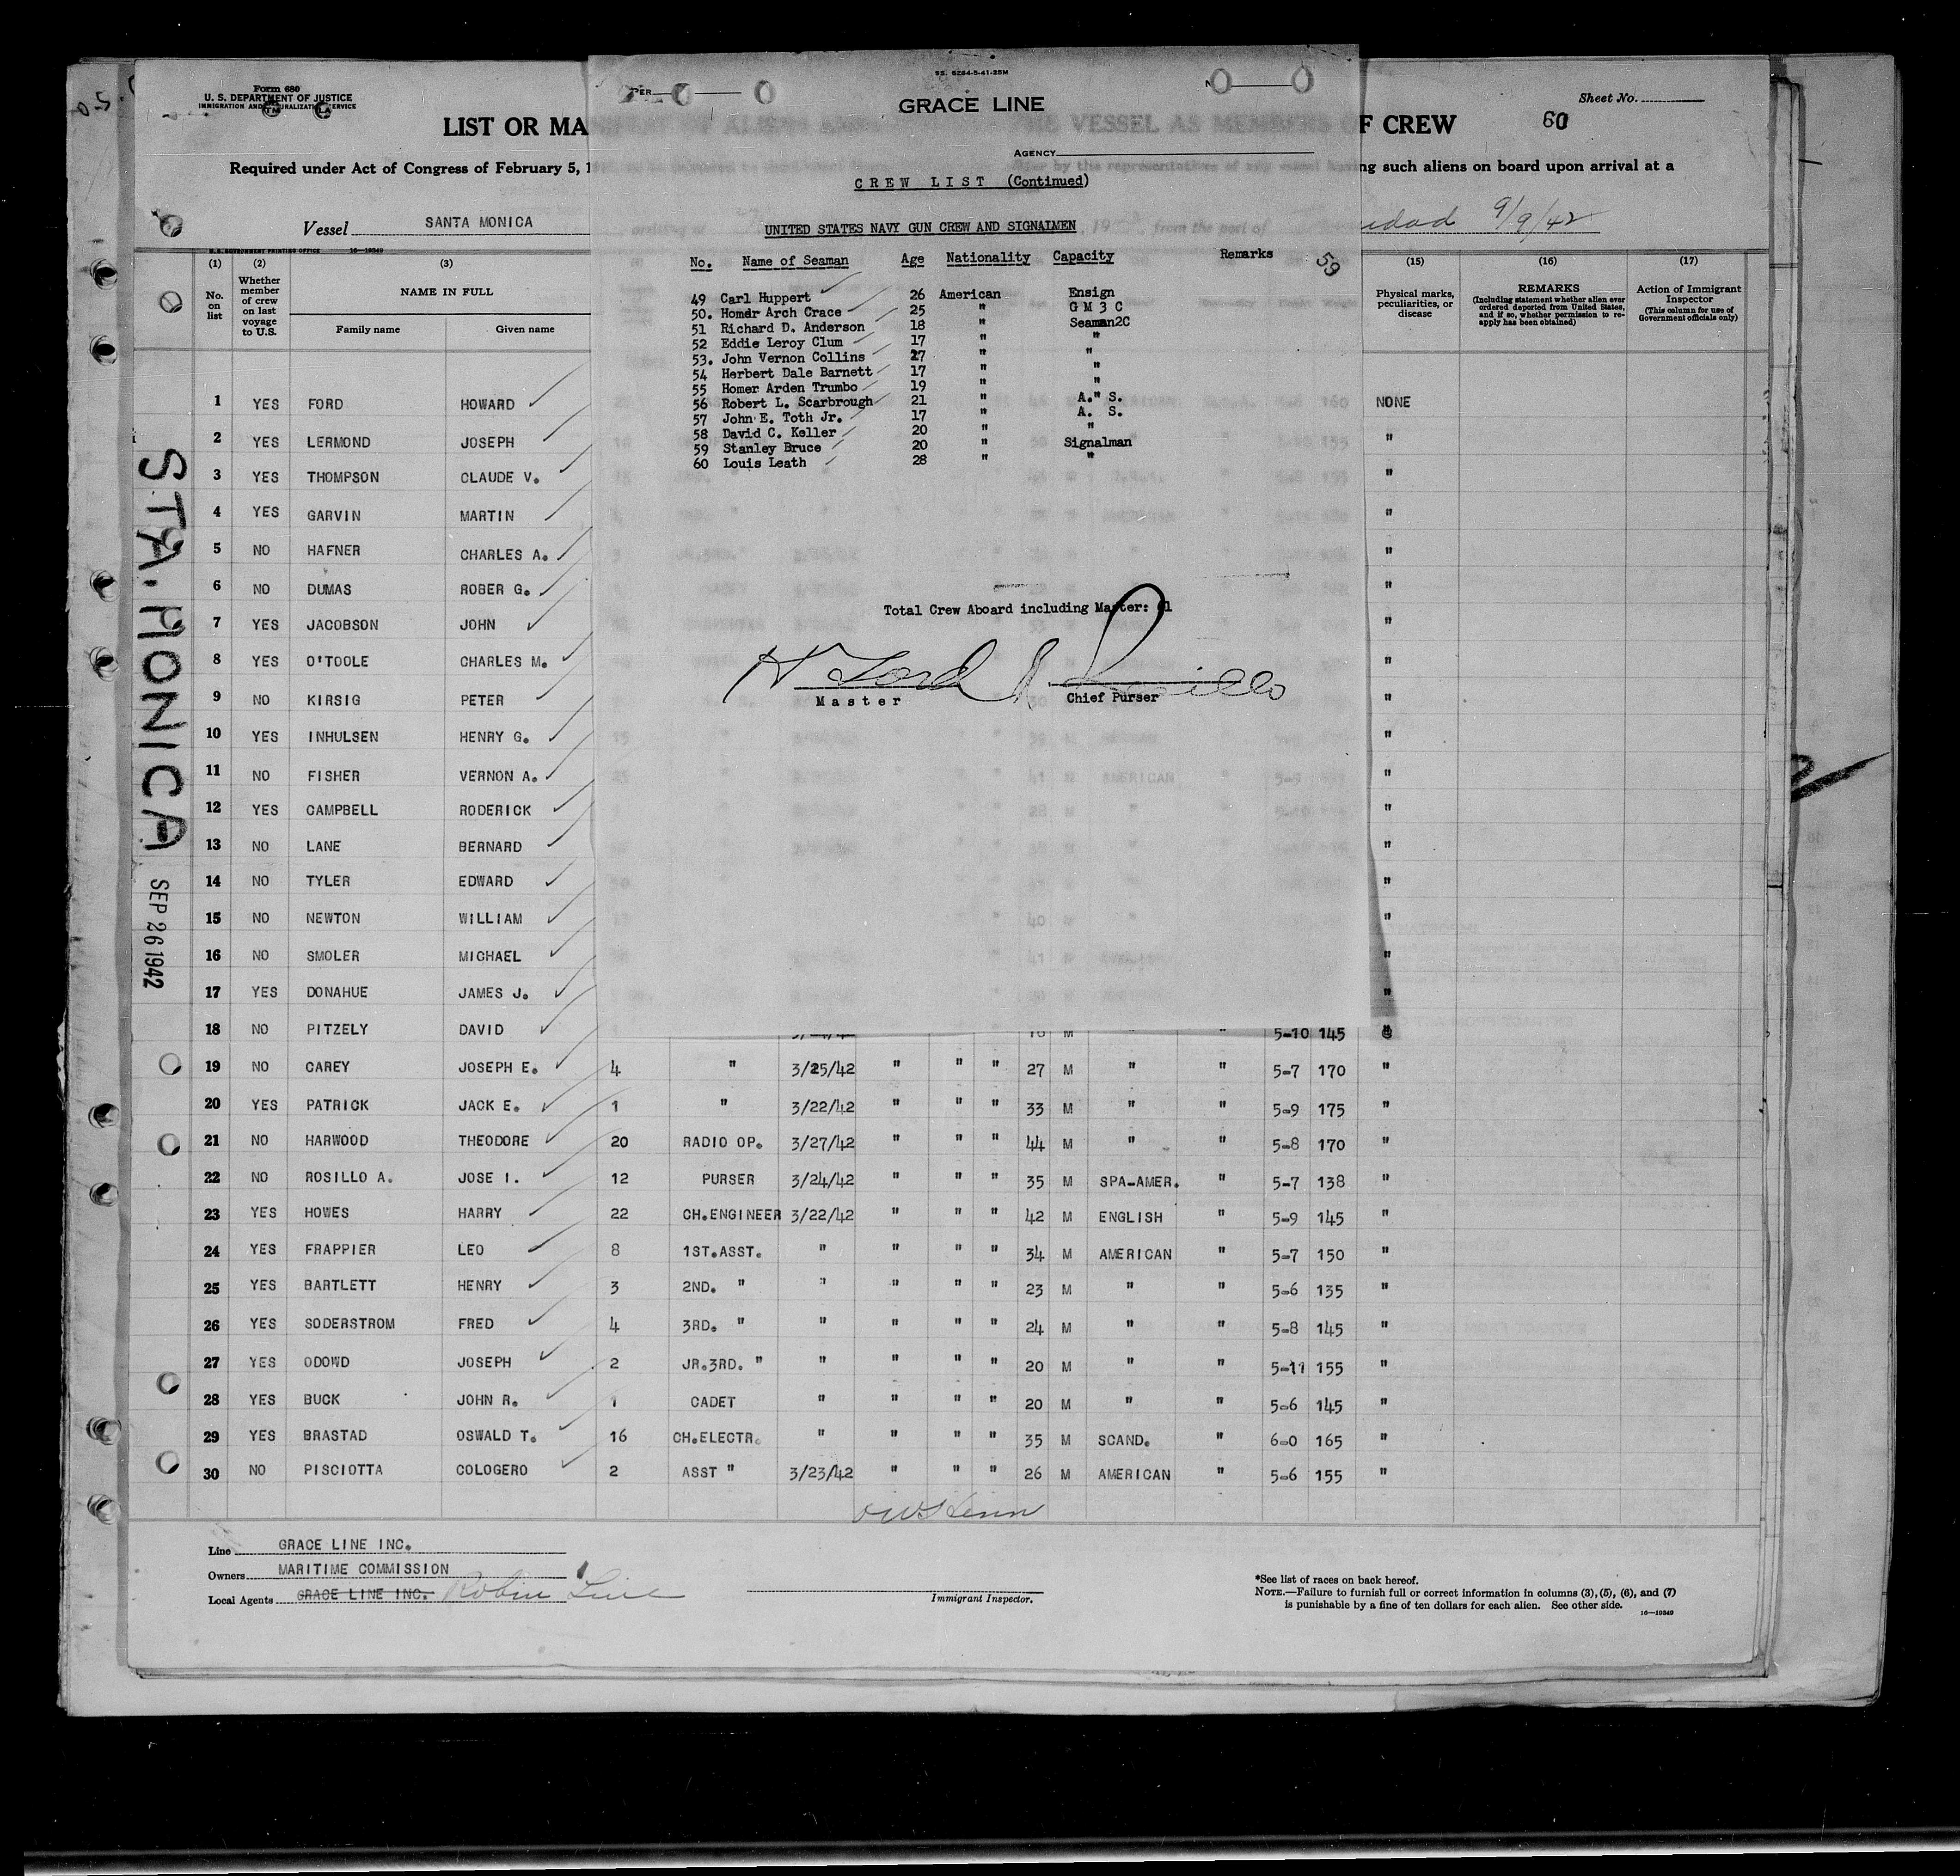 Form 680
U. S. DEPARTMENT OF JUSTICE
IMMIGRATION AND NATURALIZATION SERVICE
Sheet No.
60
LIST OR MA
F CREW
Required under Act of Congress of February 5, 1
ng such aliens on board upon arrival at a
Vessel SANTA MONICA
idad 9/9/42
U.S. GOVERNMENT PRINTING OFFICE 16—19349
SS. 6284-5-41-25M
PER
GRACE LINE
AGENCY
CREW LIST (Continued)
UNITED STATES NAVY GUN CREW AND SIGNALMEN
No. Name of Seaman Age Nationality Capacity Remarks 59
49 Carl Huppert 26 American Ensign
50. Homer Arch Crace 25 " G M 3 C
51 Richard D. Anderson 18 " Seaman2C
52 Eddie Leroy Clum 17 " "
53. John Vernon Collins 27 " "
54 Herbert Dale Barnett 17 " "
55 Homer Arden Trumbo 19 " "
56 Robert L. Scarbrough 21 " A. S.
57 John E. Toth Jr. 17 " A. S.
58 David C. Keller 20 " "
59 Stanley Bruce 20 " Signalman
60 Louis Leath 28 " "
Total Crew Aboard including Master: 61
H Ford
Master
Chief Purser
(1) (2) (3) (15) (16) (17)
No. on list
Whether member of crew on last voyage to U.S.
NAME IN FULL
Family name Given name
Physical marks, peculiarities, or disease
REMARKS
(Including statement whether alien ever ordered deported from United States, and if so, whether permission to reapply has been obtained)
Action of Immigrant Inspector
(This column for use of Government officials only)
1 YES FORD HOWARD NONE
2 YES LERMOND JOSEPH "
3 YES THOMPSON CLAUDE V. "
4 YES GARVIN MARTIN "
5 NO HAFNER CHARLES A. "
6 NO DUMAS ROBER G. "
7 YES JACOBSON JOHN "
8 YES O'TOOLE CHARLES M. "
9 NO KIRSIG PETER "
10 YES INHULSEN HENRY G. "
11 NO FISHER VERNON A. "
12 YES CAMPBELL RODERICK "
13 NO LANE BERNARD "
14 NO TYLER EDWARD "
15 NO NEWTON WILLIAM "
16 NO SMOLER MICHAEL "
17 YES DONAHUE JAMES J. "
18 NO PITZELY DAVID M " 5-10 145 "
19 NO CAREY JOSEPH E. 4 " 3/25/42 " " " 27 M " " 5-7 170 "
20 YES PATRICK JACK E. 1 " 3/22/42 " " " 33 M " " 5-9 175 "
21 NO HARWOOD THEODORE 20 RADIO OP. 3/27/42 " " " 44 M " " 5-8 170 "
22 NO ROSILLO A. JOSE I. 12 PURSER 3/24/42 " " " 35 M SPA-AMER. " 5-7 138 "
23 YES HOWES HARRY 22 CH.ENGINEER 3/22/42 " " " 42 M ENGLISH " 5-9 145 "
24 YES FRAPPIER LEO 8 1ST.ASST. " " " " 34 M AMERICAN " 5-7 150 "
25 YES BARTLETT HENRY 3 2ND. " " " " " 23 M " " 5-6 135 "
26 YES SODERSTROM FRED 4 3RD. " " " " " 24 M " " 5-8 145 "
27 YES ODOWD JOSEPH 2 JR.3RD. " " " " " 20 M " " 5-11 155 "
28 YES BUCK JOHN R. 1 CADET " " " " 20 M " " 5-6 145 "
29 YES BRASTAD OSWALD T. 16 CH.ELECTR. " " " " 35 M SCAND. " 6-0 165 "
30 NO PISCIOTTA COLOGERO 2 ASST " 3/23/42 " " " 26 M AMERICAN " 5-6 155 "
STA. MONICA
SEP 26 1942
Line GRACE LINE INC.
Owners MARITIME COMMISSION
Local Agents GRACE LINE INC. Robin Line
Immigrant Inspector.
*See list of races on back hereof.
NOTE.—Failure to furnish full or correct information in columns (3), (5), (6), and (7)
is punishable by a fine of ten dollars for each alien. See other side.
16—19349